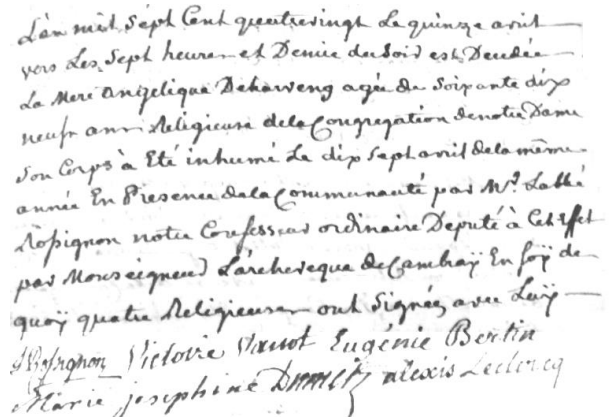 L'an mil sept Cent quatrevingt Le quinze avril
vers Les sept heures et Demie du Soir est Decedée
La Mere Angelique Deharveng agée de Soixante dix
neuf ans Religieuse de la Congregation de notre Dame
Son Corps à Eté inhumé Le dix sept avril de la même
année En Presence de la Communauté par Mr. Labbé
Rossignon notre Confesseur ordinaire Deputé à Cet Effet
par Monseigneur L'archeveque de Cambray En foÿ de
quoÿ quatre Religieuses ont Signéz avec Luÿ
Rossignon Victoire Eugénie Bertin
Marie josephine alexis Leclercq